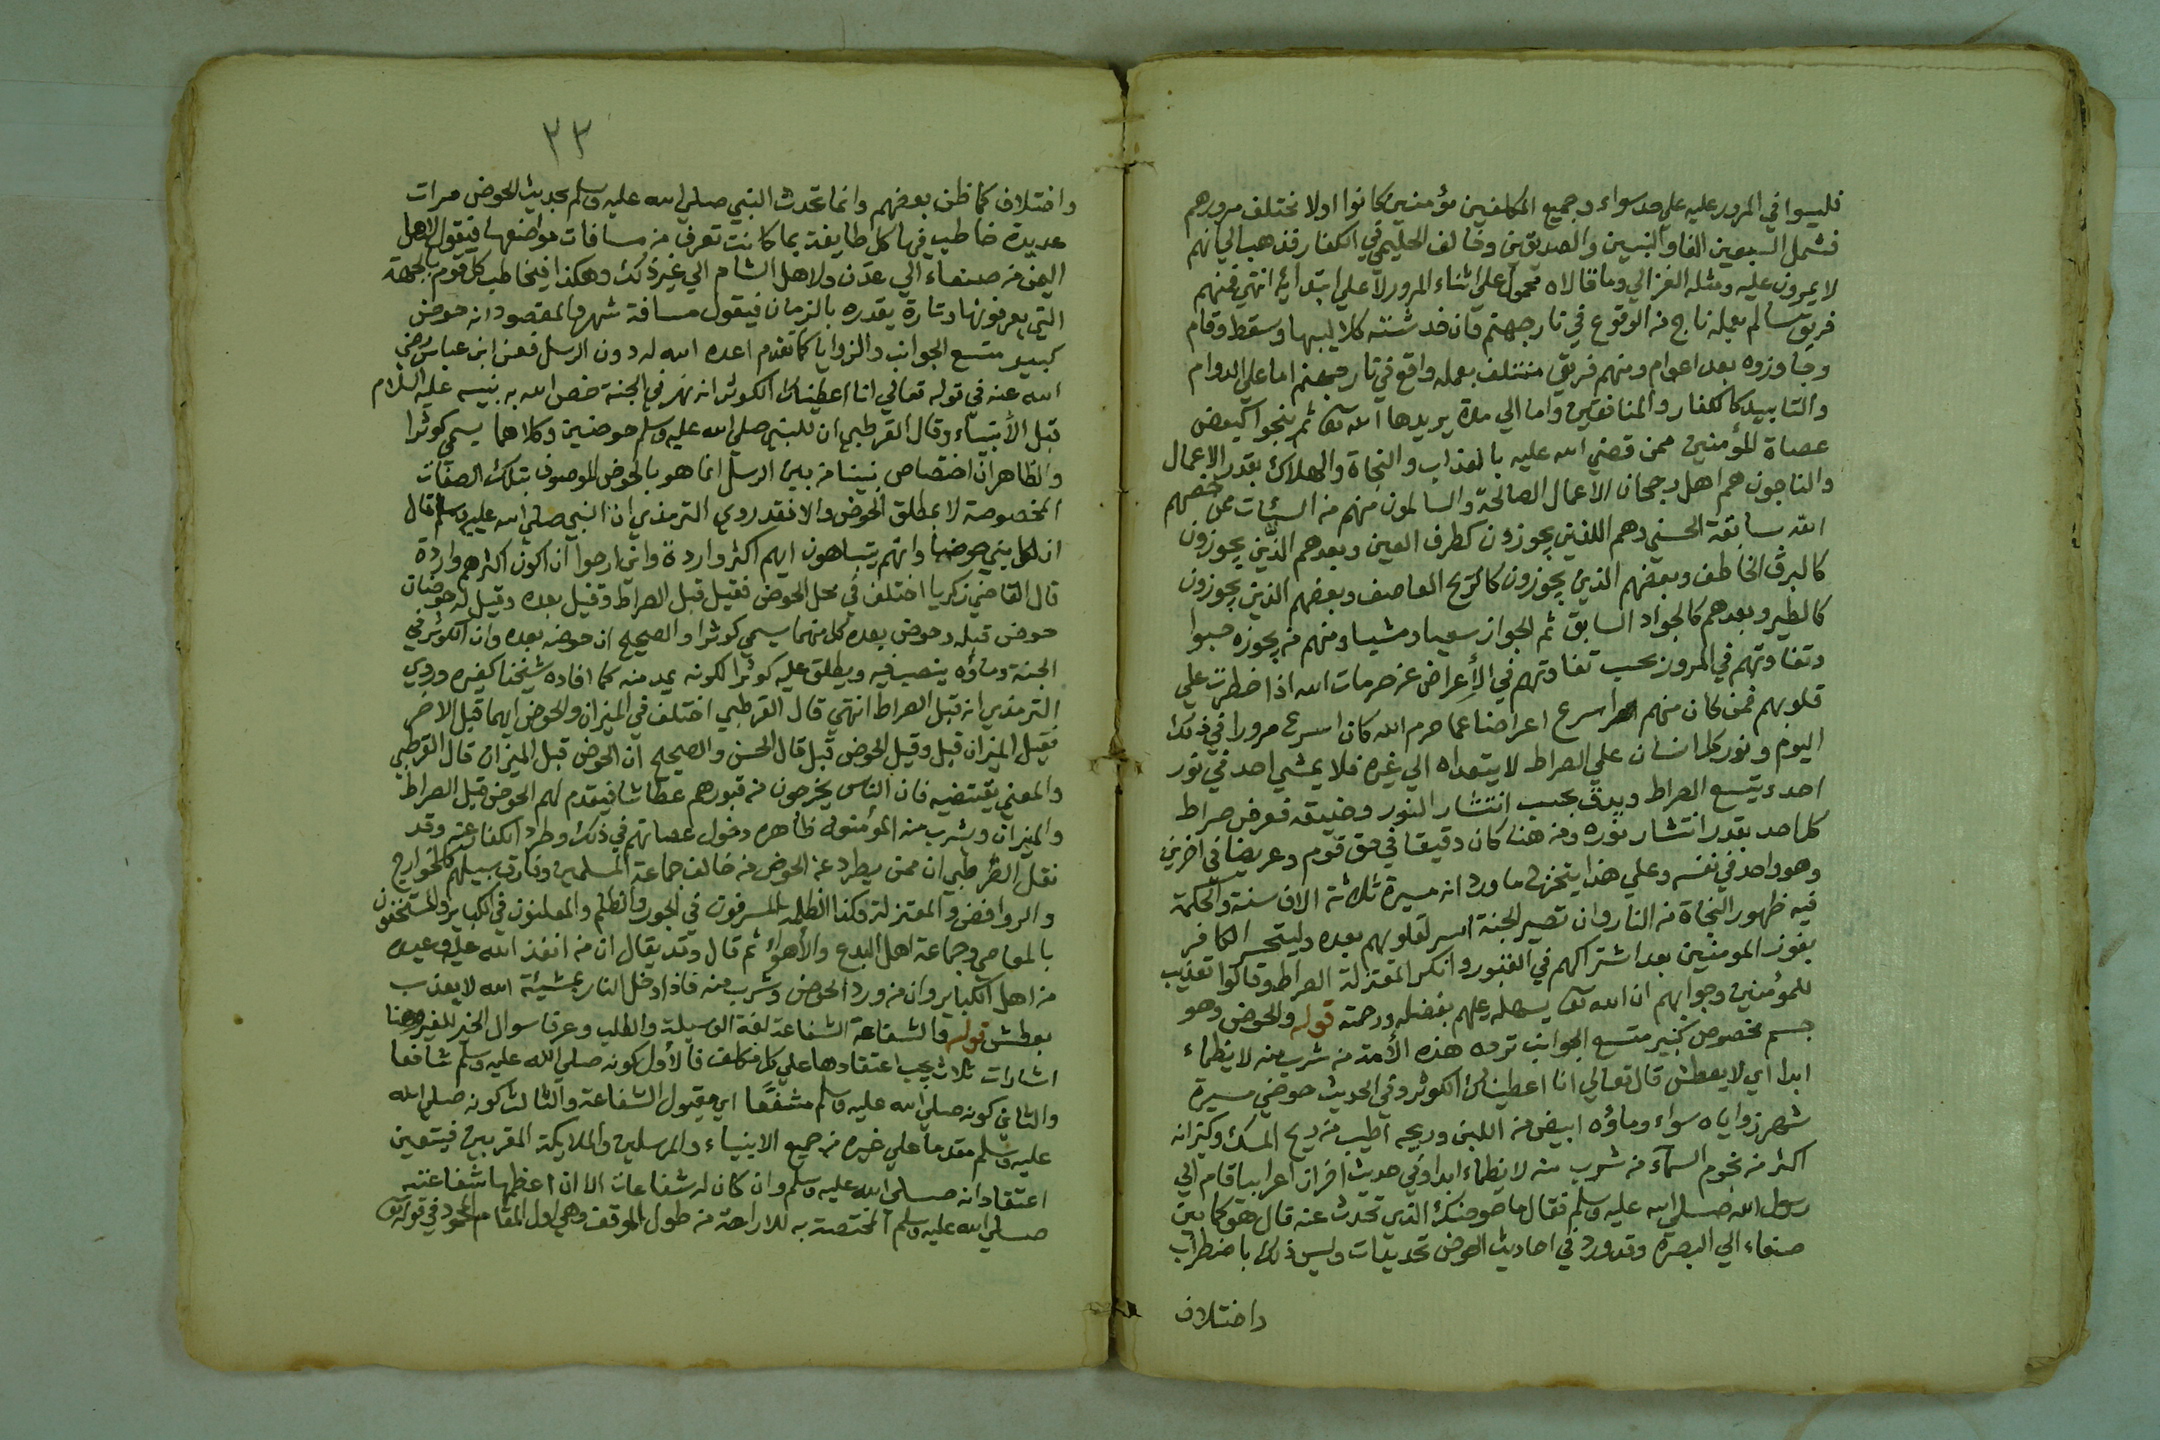 فليسوا في المرور عليه علي حد سواء وجميع المكلفين مؤمنين كانوا اولا تختلف مرورهم
فشمل السبعين الفا والنبيين والصديقين وخالف الحليمي في الكفار فذهب الي انهم
لا يمرون عليه ومثله الغزالي وما قالاه محمول علي اثناء المرور لا علي ابتدايه انتهي فمنهم
فريق سالم بعمله ناج من الوقوع في نار جهنم فان خدشته كلاليبها وسقط وقام
وجاوزوه بعد اعوام ومنهم فريق منتلف بعمله واقع في نار جهنم اما علي الدوام
والتابيد كالكفار والمنافقين واما الي مدة يريدها الله تعا ثم ينجوا كبعض
عصاة المؤمنين ممن قضي الله عليه بالعذاب والنجاة والهلاك بقدر الاعمال
والناجون هم اهل رجحان الاعمال الصالحة والسالمون منهم من السيئات ممن خصهم
الله سابقة الحسني وهم اللذين يجوزون كطرف العين وبعدهم الذين يجوزون
كالبرق الخاطف وبعضهم الذين يجوزون كالريح العاصف وبعضهم الذين يجوزون
كالطير وبعدهم كالجواد السابق ثم الجواز سعيا ومشيا ومنهم من يجوزه حبوا
وتفاوتهم في المرور بحسب تفاوتهم في الإعراض عن حرمات الله اذا خطرت علي
قلوبهم فمن كان منهم اسرع اعراضا عما حرم الله كان اسرع مرورا في ذلك
اليوم ونور كل انسان علي الصراط لا يتعداه الي غيره فلا يمشي احد في نور
احد ويتسع الصراط ويدق بحسب انتشار النور وضيقه فعرض صراط
كل احد بقدر انتشار نوره ومن هنا كان دقيقا في حق قوم وعريضا في اخرين
وهو واحد في نفسه وعلي هذا يتخرج ما ورد انه مسيرة ثلاثة الاف سنة والحكمة
فيه ظهور النجاة من النار وان تصير الجنة اسر لقلوبهم بعده وليتحسر الكافر
بفوز المومنين بعد اشتراكهم في العبور وانكر المعتزلة الصراط وقالوا تعذيب
للمؤمنين وجوابهم ان الله تعا يسهله عليهم بفضله ورحمته قوله والحوض وهو
جسم مخصوص كبير متسع الجوانب ترده هذه الأمة من شرب منه لا يظماء
ابدا اي لا يعطش قال تعالي انا اعطيناك الكوثر وفي الحديث حوضي مسيرة
شهر زواياه سواء وماؤه ابيض من اللبن وريحه اطيب من ريح المسك وكيزانه
اكثر من نجوم السماء من شرب منه لا يظماء ابدا وفي حديث اخر ان اعرابيا قام الي
رسول الله صلي الله عليه وسلم فقال ما حوضك الذي تحدث عنه قال هو كما بين
صنعاء الي البصرة وقد ورد في احاديث الحوض تحديدات وليس ذلك باضطراب
واختلاف
٣٣
واختلاف كما ظن بعضهم وانما تحدث النبي صلي الله عليه وسلم بحديث الحوض مرات
عديدة خاطب فيها كل طايفة بما كانت تعرف من مسافات مواضعها فيقول لاهل
اليمن من صنعاء الي عدن ولاهل الشام الي غير ذلك وهكذا فيخاطب كل قوم بالجهة
التي يعرفونها وتارة يقدره بالزمان فيقول مسافة شهر فالمقصود انه حوض
كبير متسع الجوانب والزوايا كما تقدم اعده الله له دون الرسل فعن ابن عباس رضي
الله عنه في قوله تعالي انا اعطيناك الكوثر انه نهر في الجنة خص الله به نبيه عليه السلام
قبل الأنبياء وقال القرطبي ان للنبي صلي الله عليه وسلم حوضين وكلاهما يسمي كوثرا
والظاهر ان اختصاص نبينا من بين الرسل انما هو بالحوض الموصوف بتلك الصفات
المخصوصة لا بمطلق الحوض والا فقد روي الترمذي ان النبي صلي الله عليه وسلم قال
ان لكل نبي حوضا وانهم يتباهون ايهم اكثر واردة واني ارجوا ان اكون اكثرهم واردة
قال القاضي زكريا اختلف في محل الحوض فقيل قبل الصراط وقيل بعده وقيل له حوضان
حوض قبله وحوض بعده كل منهما يسمي كوثرا والصحيح ان حوضه بعده وان الكوثر في
الجنة وماؤه ينصب فيه ويطلق عليه كوثرا لكونه يمد منه كما افاده شيخنا كغيره وروي
الترمذي انه قبل الصراط انتهي قال القرطبي اختلف في الميزان والحوض ايهما قبل الاخر
فقيل الميزان قبل وقيل الحوض قبل قال الحسن والصحيح ان الحوض قبل الميزان قال القرطبي
والمعني يقتضيه فان الناس يخرجون من قبورهم عطاشا فيقدم لهم الحوض قبل الصراط
والميزان وشرب منه المؤمنون ظاهره دخول عصاتهم في ذلك وطرد الكفار عنه وقد
نقل القرطبي ان ممن يطرد عن الحوض من خالف جماعة المسلمين وفارق سبيلهم كالخوارج
والروافض والمعتزلة وكذا الظلمة المسرفون في الجور والظلم والمعلنون في الكباير والمستخفون
بالمعاصي وجماعة اهل البدع والأهواء ثم قال وقد يقال ان من انفذ الله عليه وعيده
من اهل الكباير وان من ورد الحوض وشرب منه فاذا دخل النار بمشيئة الله لا يعذب
بعطش قوله والشفاعة الشفاعة لغة الوسيلة والطلب وعرفا سوال الخير للغير وهنا
اشارات ثلاث يجب اعتقادها علي كل مكلف فالأول كونه صلي الله عليه وسلم شافعا
والثاني كونه صلي الله عليه وسلم مشفعا اي مقبول الشفاعة والثالث كونه صلي الله
عليه وسلم مقدما علي غيره من جميع الانبياء والمرسلين والملايكة المقربين فيتعين
اعتقاد انه صلي الله عليه وسلم وان كان له شفاعات الا ان اعظمها شفاعته
صلي الله عليه وسلم المختصة به للاراحة من طول الموقف وهي اول المقام المحمود في قوله تعا